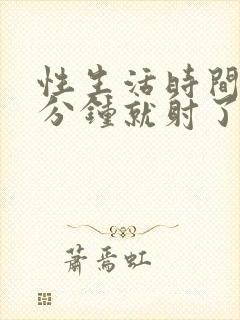 性生活時間
分鐘就射了
蕭焉虹